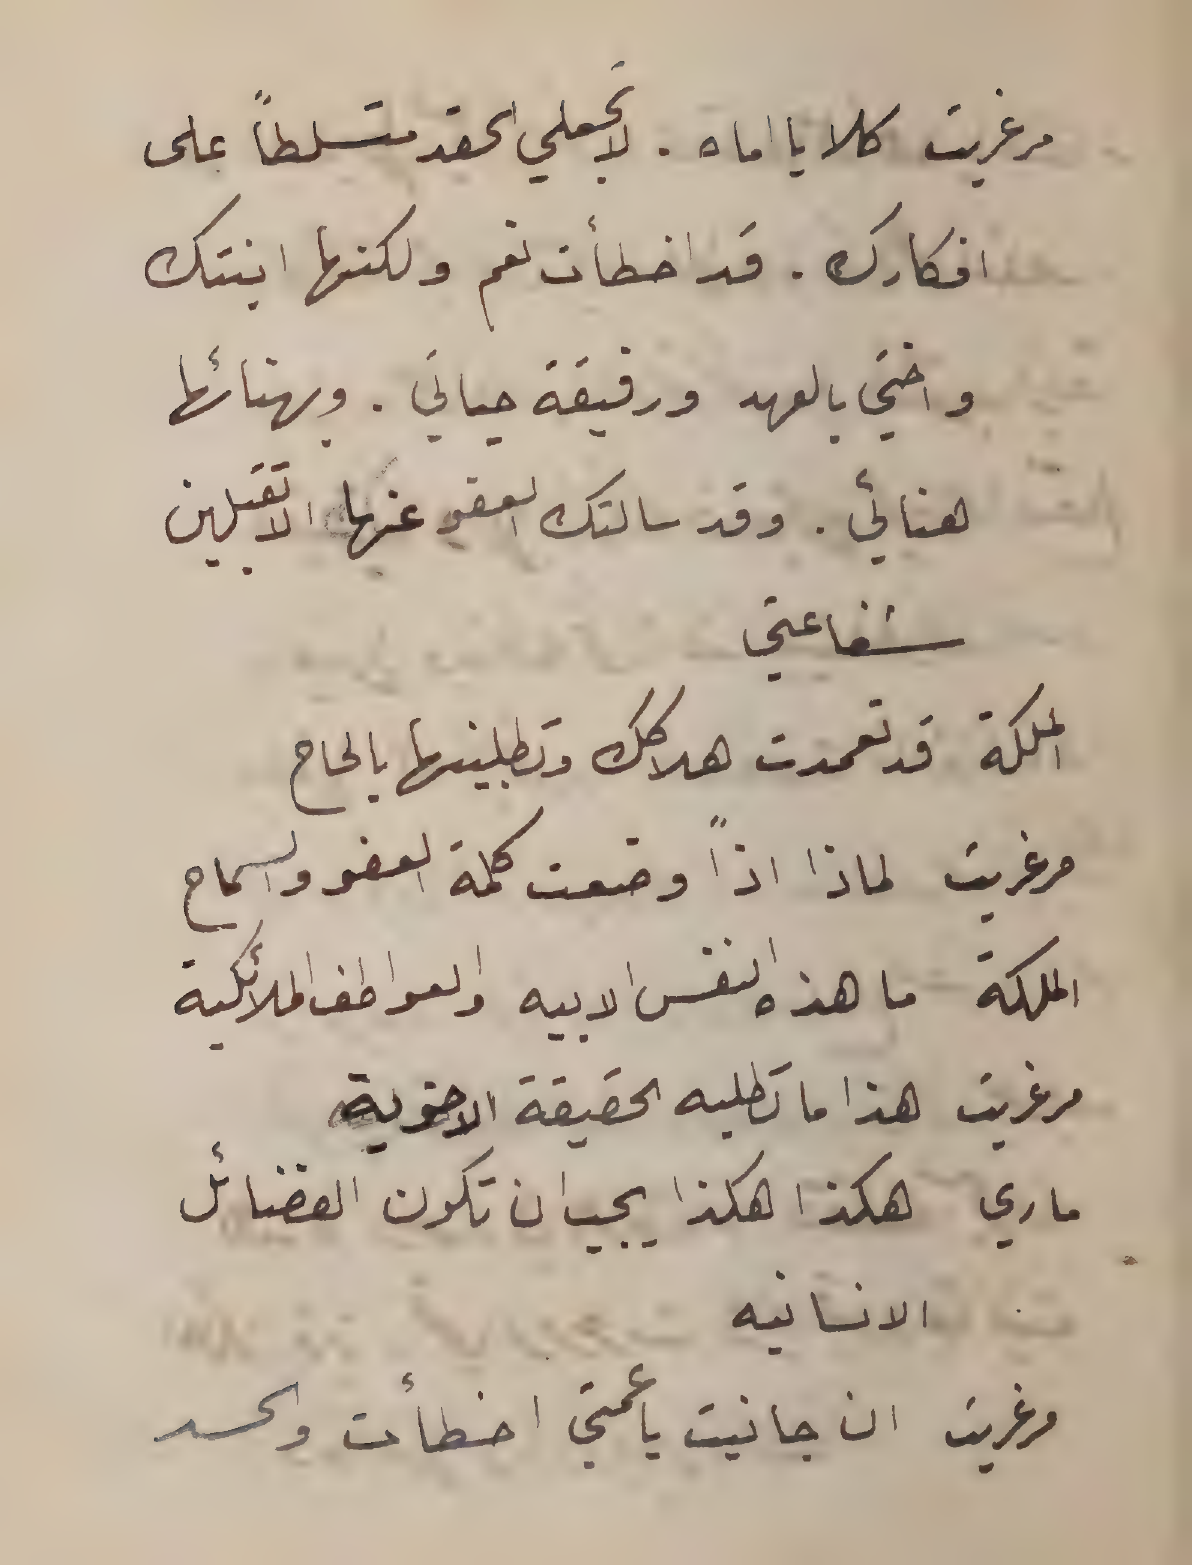 مرغريت كلا يا اماه . لا تجعلي الحقد متسلطاً على
افكارك . قد اخطأت نعم ولكنها ابنتك
واختي بالعهد ورفيقة حياتي . وبهنائها
هنائي . وقد سالتك العفو عنها الا تقبلين
شفاعتي
الملكة قد تعمدت هلاكك وتطلبينها بالحاح
مرغريت لماذا اذاً وضعت كلمة العفو والسماح
الملكة ما هذه النفس الابيه والعواطف الملائكية
مرغريت هذا ما تطلبه الحقيقة الاخوية
ماري هكذا هكذا يجب ان تكون الفضائل
الانسانيه
مرغريت ان جانيت يا عمتي اخطأت والحسد